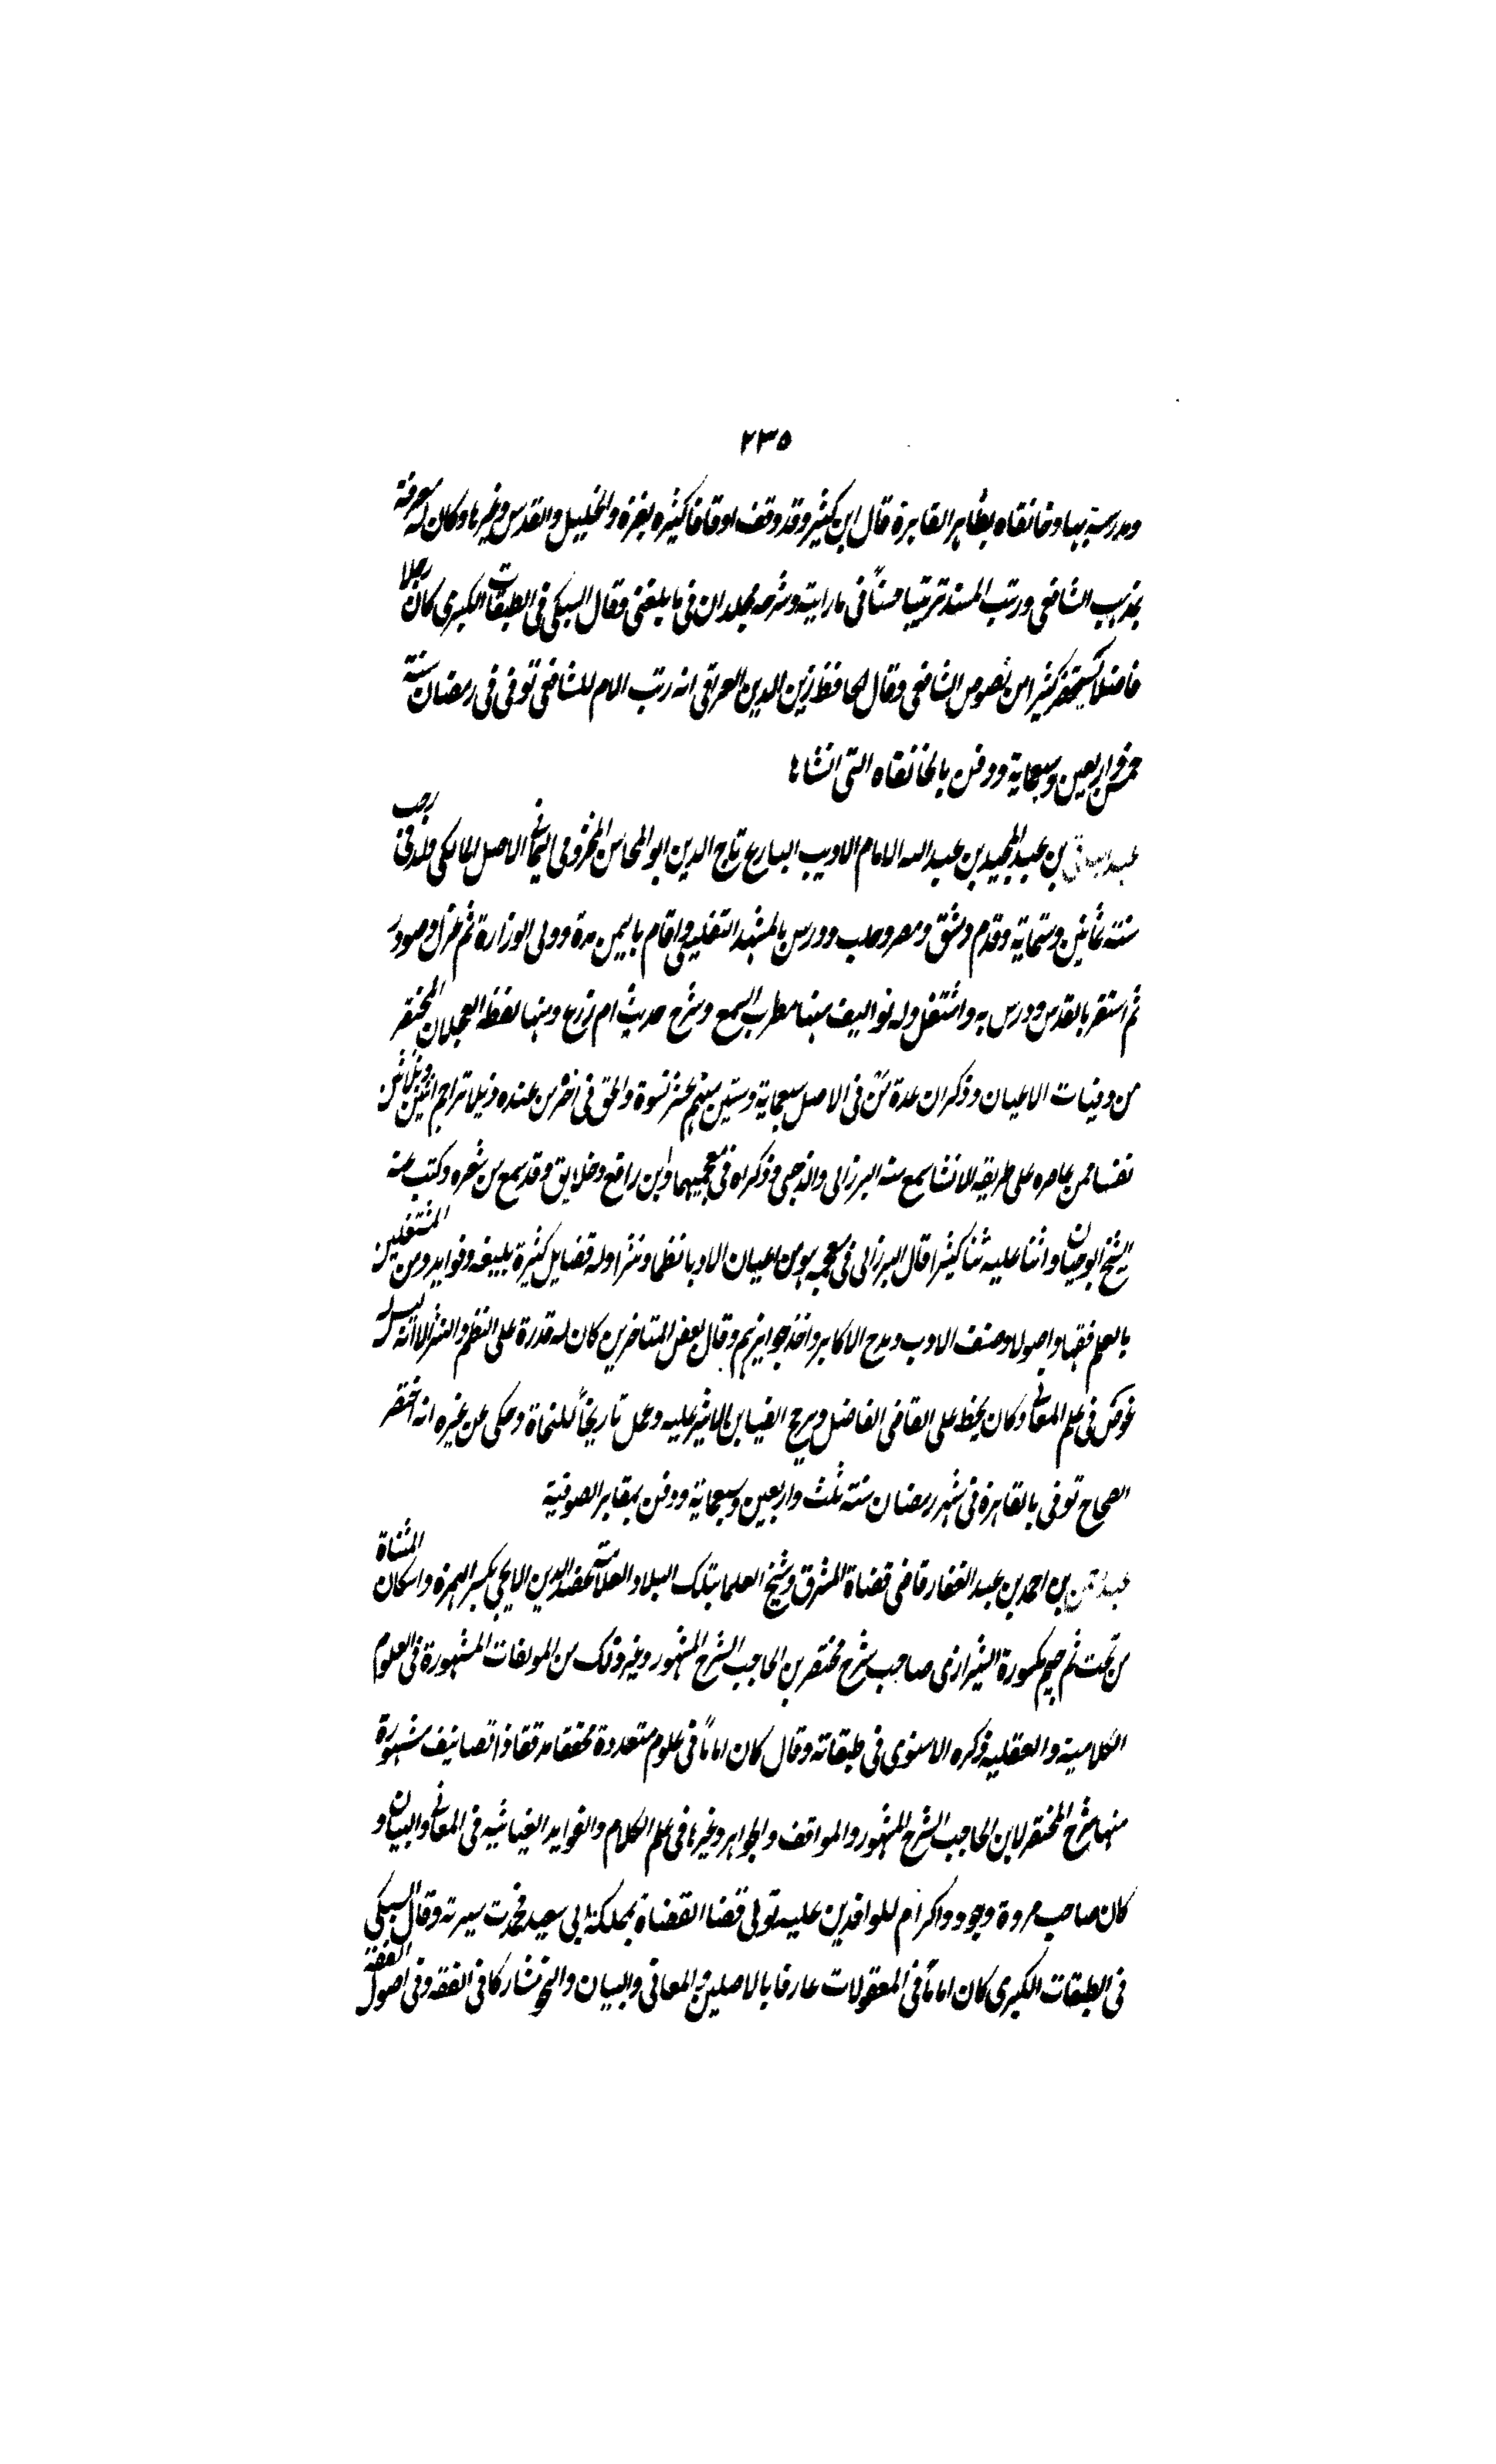 ٢٣٥
ومدرسة بها وخانقاه بظاهر القاهرة قال ابن كثير وقد وقف اوقافا كثيرة بغزة والخليل والقدس وغيرها وكان له معرفة
بمذهب الشافعي ورتب المسند ترتيبا حسناً في ما رايته وشرحه مجلدان في ما بلغني وقال السبكي في الطبقات الكبرى كان رجلا
فاضلا يستحضر كثيرا من نصوص الشافعي وقال الحافظ زين الدين العراقي انه رتب الام للشافعي توفي في رمضان سنة
خمس واربعين وسبعماية ودفن بالخانقاه التي انشاها
عبد الباقي بن عبد المجيد بن عبد الله الامام الاديب البارع تاج الدين ابو المحاسن المخزومي اليماني الاصل المالكي ولد في رجب
سنة ثمانين وستماية وقدم دمشق ومصر وحلب ودرس بالمشهد النفيسي واقام باليمن مدة وولي الوزارة ثم عزل وصودر
ثم استقر بالقدس ودرس به واشتغل وله تواليف منها مطرب السمع وشرح حديث ام زرع ومنها لقطة العجلان المختصر
من وفيات الاعيان وذكر ان عدة من في الاصل سبعماية وستين سبعة عشر نسوة والحق في اخره من عنده ذيلا تراجم اثنين وثلاثين
نفسا ممن عاصره على طريقه الانشا سمع منه البرزالي والذهبي وذكراه في معجميهما وابن رافع وخلايق وقد سمع من شعره وكتب عنه
الشيخ ابو حيان واثنا عليه ثنا كثيرا قال البرزالي في معجمه هو من اعيان الادبا نظما ونثرا وله قصايل كثيرة بليغه وفوايد ومن المشتغلين
بالعلم فقها واصولا وصنف الادب ومدح الاكابر واخذ جوايزهم وقال بعض المتاخرين كان له قدرة على النظم والنثر الا انه ليس له
غوص في علم المعاني وكان يحط على القاضي الفاضل ويرجح الضيا بن الاثير عليه وعمل تاريخاً للنحاة وحكى عن غيره انه اختصر
الصحاح توفي بالقاهرة في شهر رمضان سنة ثلث واربعين وسبعماية ودفن بمقابر الصوفية
عبد الرحمن بن احمد بن عبد الغفار قاضي قضاة المشرق وشيخ العلما بتلك البلاد العلامة عضد الدين الايجي بكسر الهمزة واسكان المثناة
من تحت ثم جيم مكسورة الشيرازي صاحب شرح مختصر بن الحاجب الشرح المشهور وغير ذلك من المولفات المشهورة في العلوم
الكلامية والعقليه ذكره الاسنوي في طبقاته وقال كان اماماً في علوم متعددة محققا مدققا ذا تصانيف مشهورة
منها شرح المختصر لابن الحاجب الشرح المشهور والمواقف والجواهر وغيرها في علم الكلام والفوايد الغياثيه في المعاني والبيان و
كان صاحب مروة وجود واكرام للوافدين عليه تولى قضا القضاة بمملكة ابي سعيد فحمدت سيرته وقال السبكي
في الطبقات الكبرى كان اماماً في المعقولات عارفا بالاصلين والمعاني والبيان والنحو مشاركا في الفقه وفي اصول الفقة